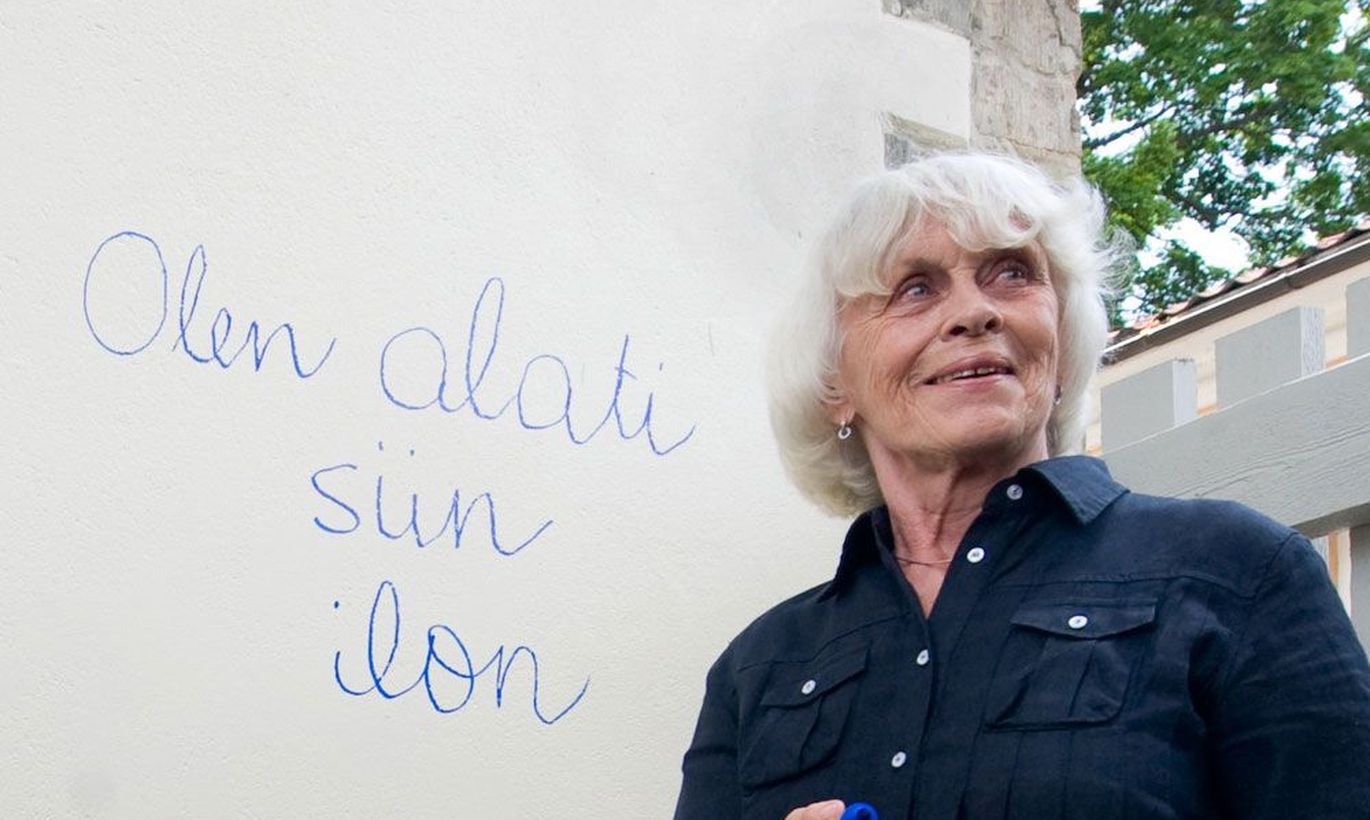 Olen alati
siin
ilon